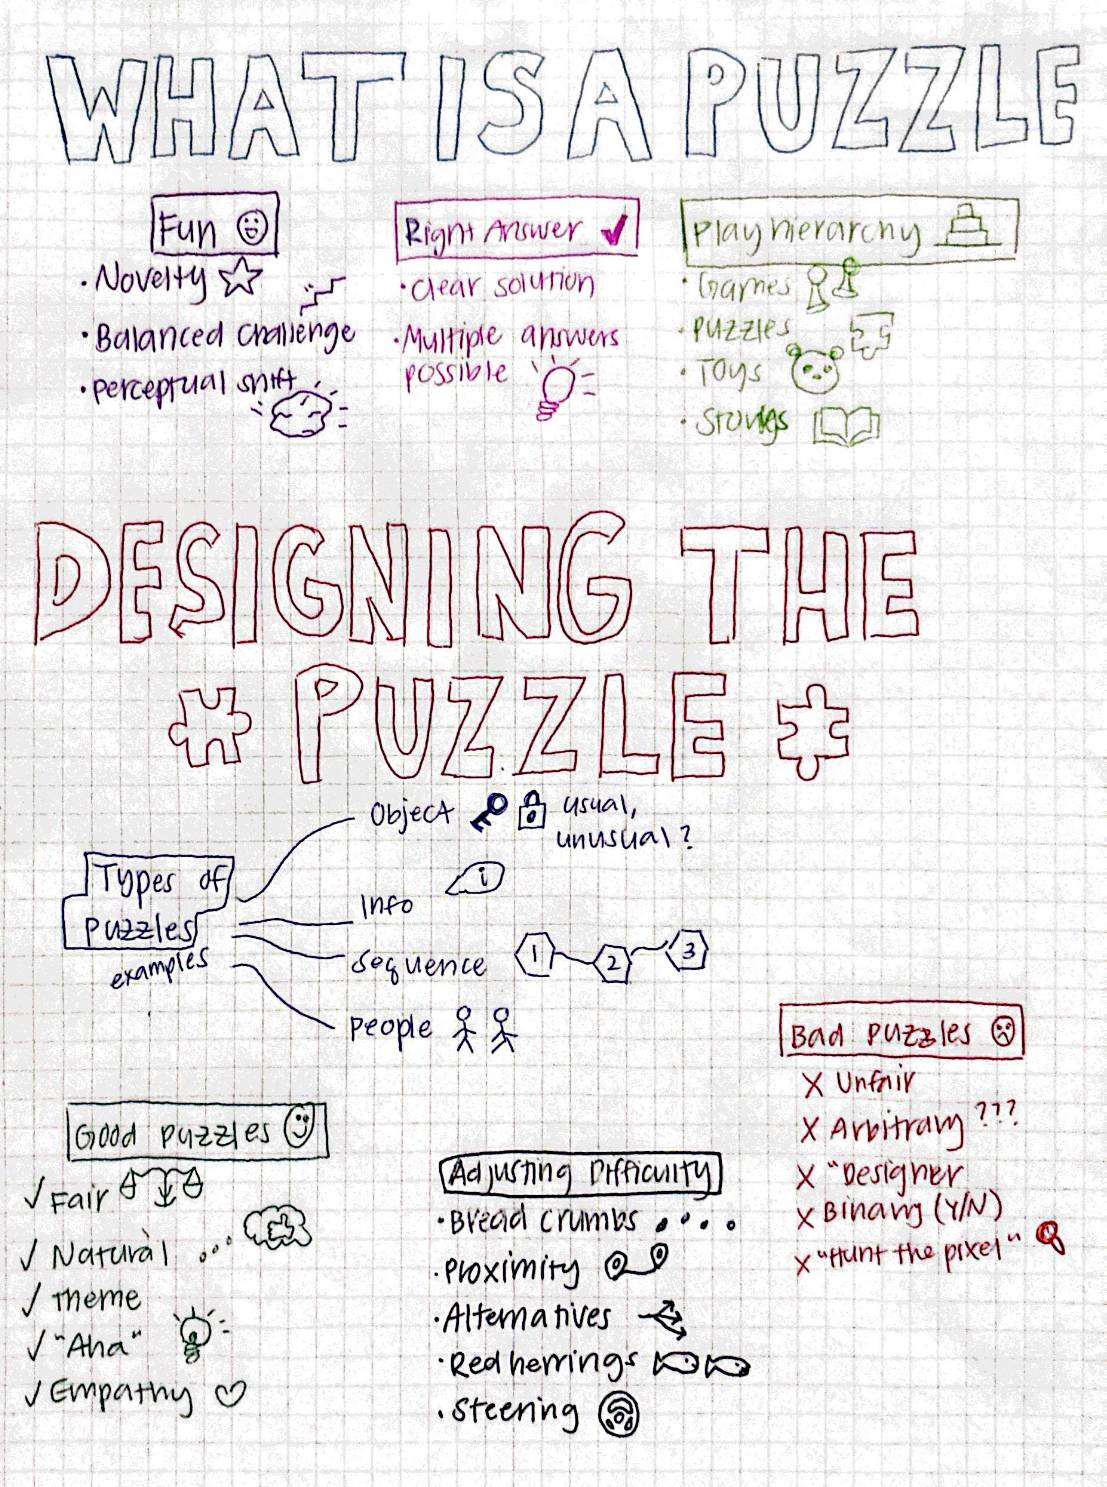 WHAT IS A PUZZLE
Fun
• Novelty
• Balanced challenge
• perceptual shift
Right Answer
• clear solution
• Multiple answers
possible
Play hierarchy
• Games
• puzzles
• Toys
• Stories
DESIGNING THE
PUZZLE
Types of
puzzles
examples
Object
usual,
unusual?
Info
i
Sequence
1
2
3
people
Good puzzles
✓ Fair
✓ Natural
✓ Theme
✓ "Aha"
✓ Empathy
Adjusting Difficulty
• Bread crumbs
• Proximity
• Alternatives
• Red herrings
• Steering
Bad puzzles
X Unfair
X Arbitrary ???
X "Designer
X Binary (Y/N)
X "Hunt the pixel"